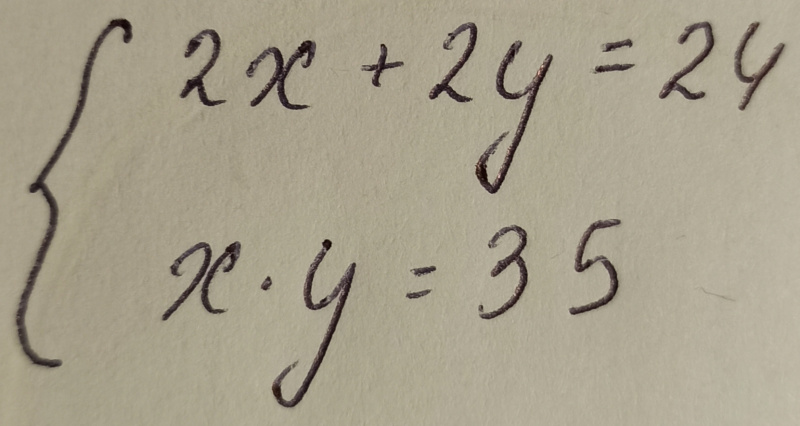 2x + 2y = 24
x · y = 35